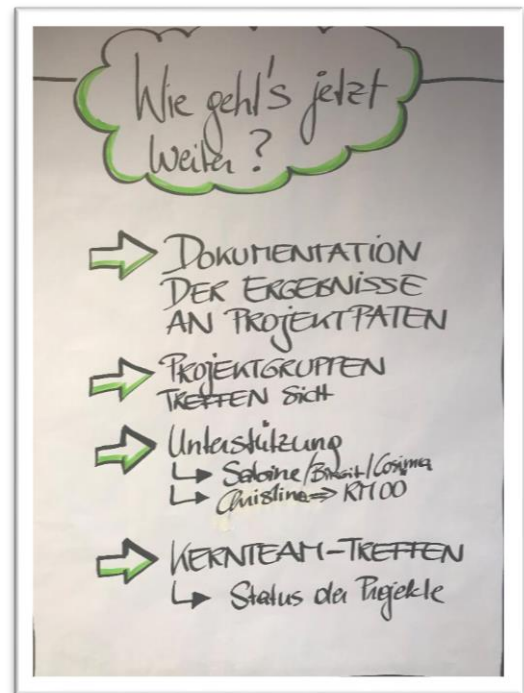 Wie geht's jetzt
weiter?
DOKUMENTATION
DER ERGEBNISSE
AN PROJEKTPATEN
PROJEKTGRUPPEN
TREFFEN SICH
Unterstützung
Sabine/Birgit/Cosima
Christine ⇒ RM00
KERNTEAM-TREFFEN
Status der Projekte